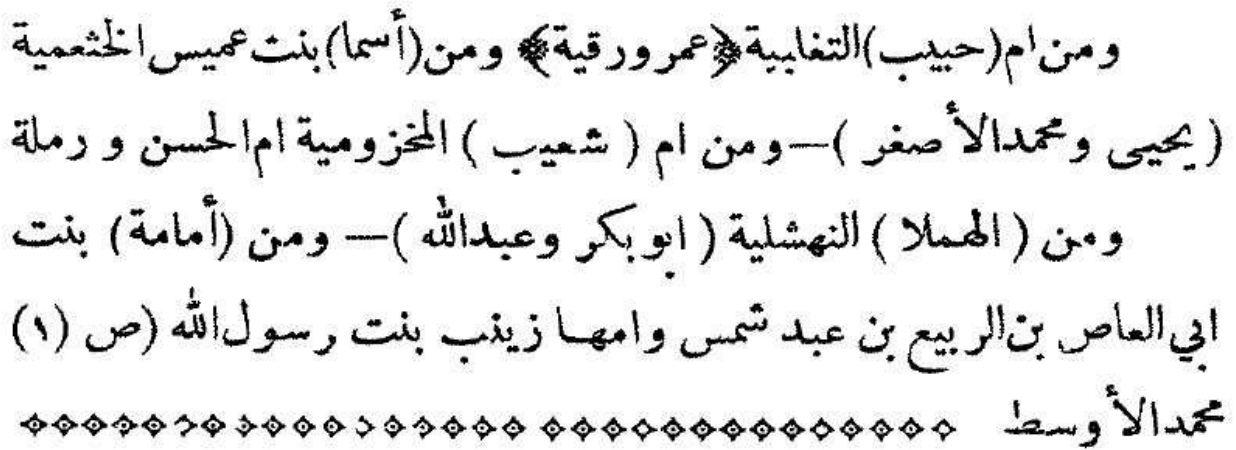 ومن ام (حبيب) التغلبية ﴿عمر ورقية﴾ ومن (أسما) بنت عميس الخثعمية
( يحيى ومحمد الأ صغر ) — ومن ام ( شعيب ) المخزومية ام الحسن و رملة
ومن ( الهملا ) النهشلية ( ابو بكر وعبدالله ) — ومن (أمامة) بنت
ابي العاص بن الربيع بن عبد شمس وامها زينب بنت رسول الله (ص (١)
محمد الأ وسط